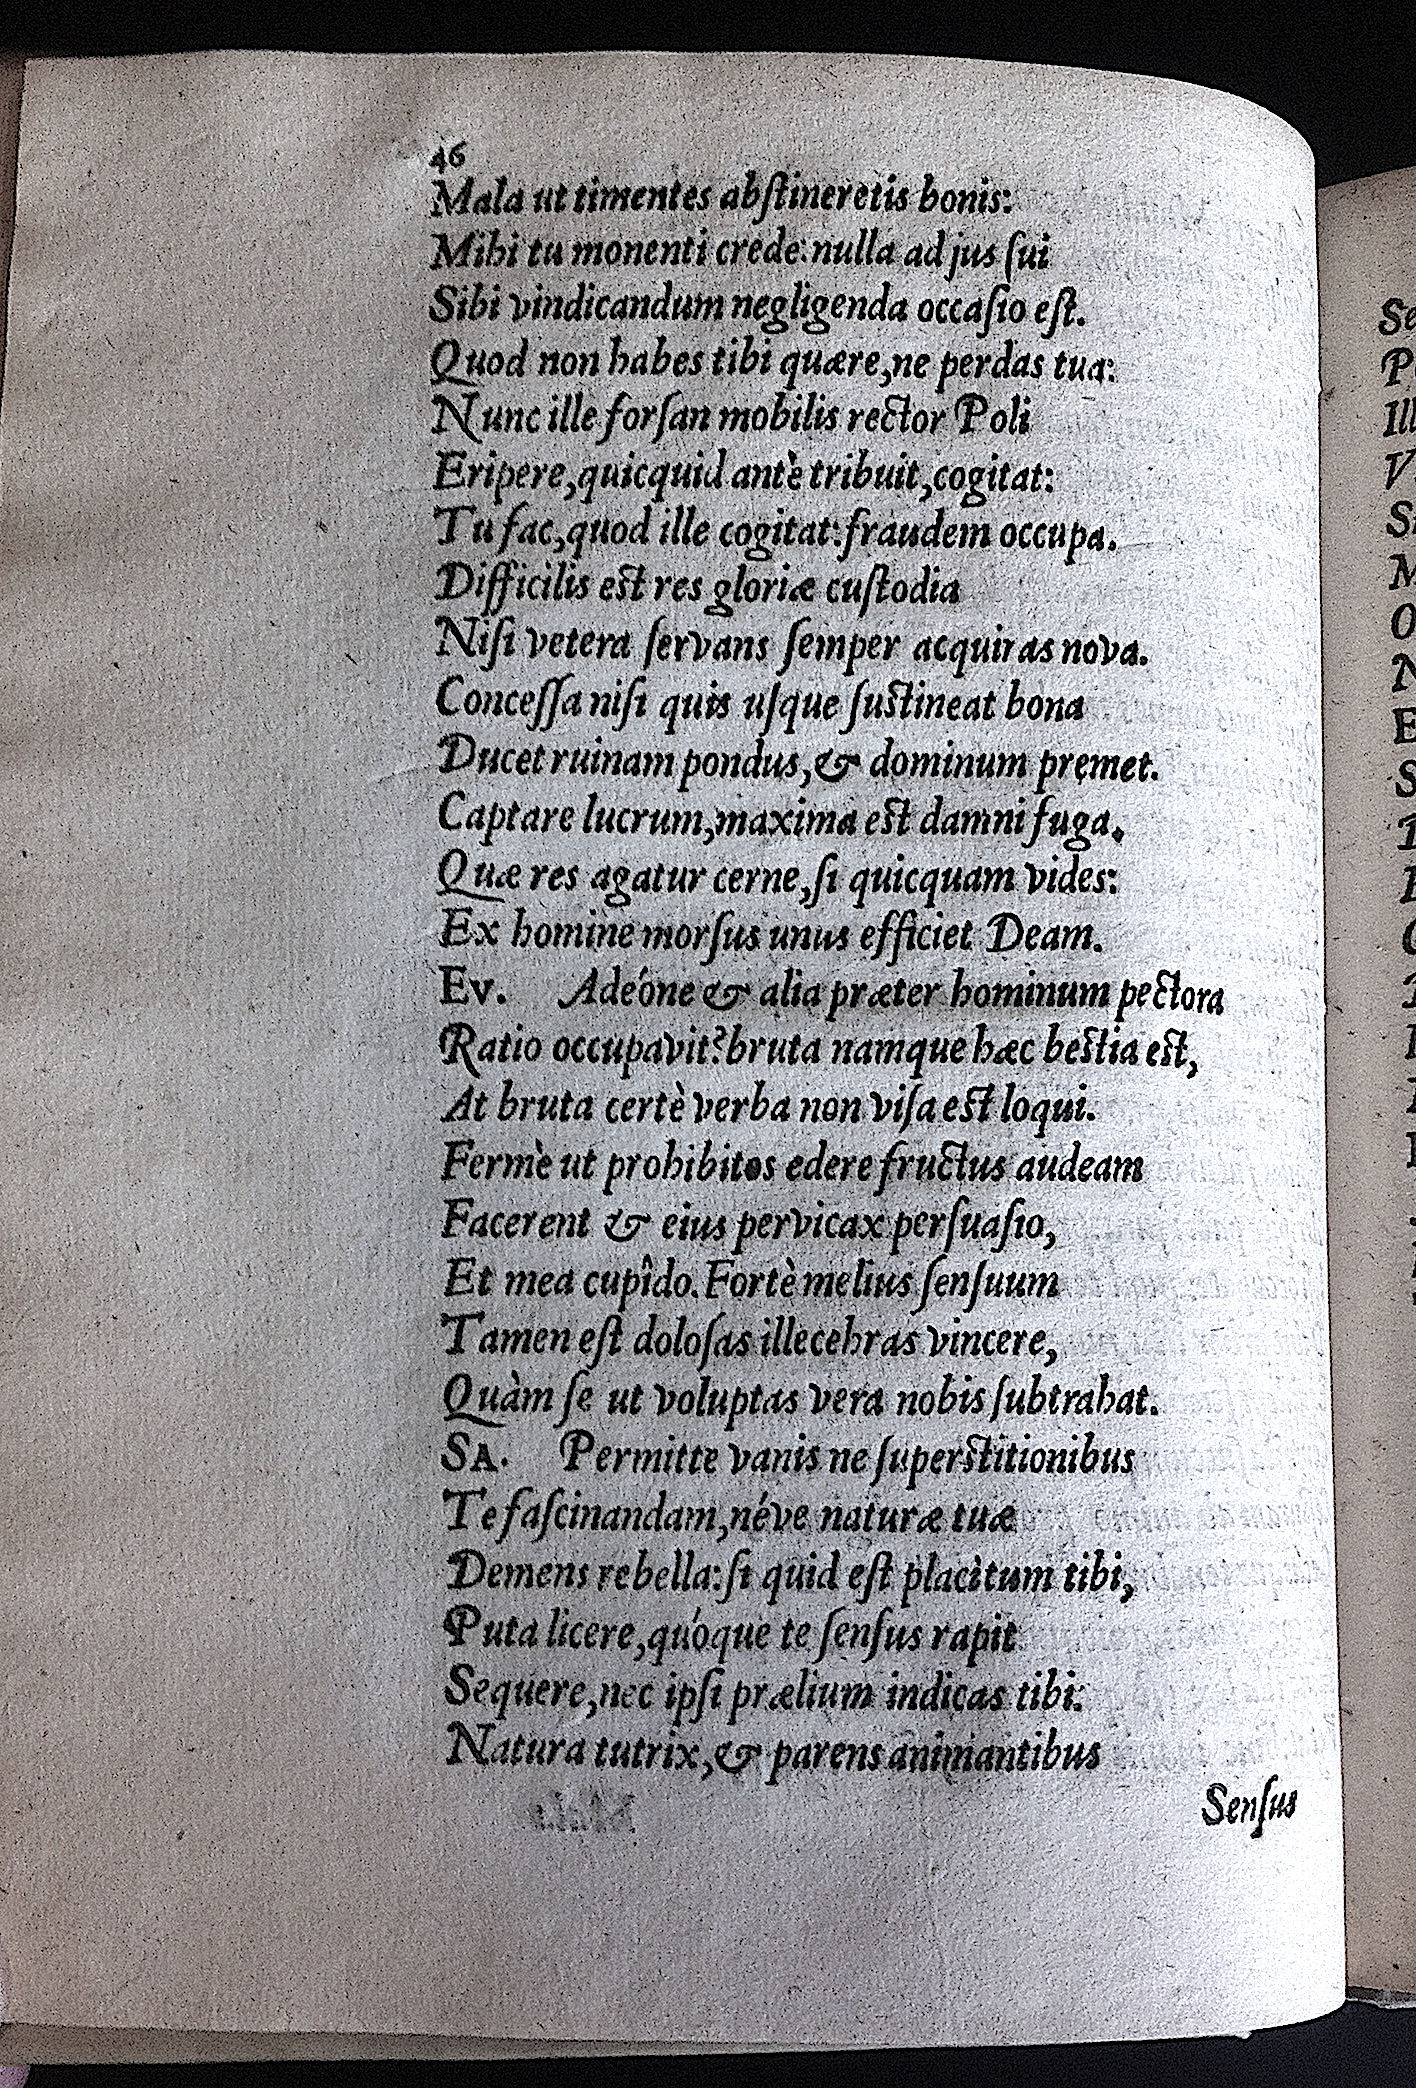 46
Mala ut timentes abſtineretis bonis:
Mihi tu monenti crede: nulla ad jus ſui
Sibi vindicandum negligenda occaſio eſt.
Quod non habes tibi quære, ne perdas tua:
Nunc ille forſan mobilis rector Poli
Eripere, quicquid antè tribuit, cogitat:
Tu fac, quod ille cogitat: fraudem occupa.
Difficilis eſt res gloriæ cuſtodia
Niſi vetera ſervans ſemper acquiras nova.
Conceſſa niſi quis uſque ſuſtineat bona
Ducet ruinam pondus, & dominum premet.
Captare lucrum, maxima eſt damni fuga.
Quæ res agatur cerne, ſi quicquam vides:
Ex homine morſus unus efficiet Deam.
Ev. Adeóne & alia præter hominum pectora
Ratio occupavit? bruta namque hæc beſtia eſt,
At bruta certè verba non viſa eſt loqui.
Fermè ut prohibitos edere fructus audeam
Facerent & eius pervicax perſuaſio,
Et mea cupîdo. Fortè melius ſenſuum
Tamen eſt doloſas illecebras vincere,
Quàm ſe ut voluptas vera nobis ſubtrahat.
SA. Permitte vanis ne ſuperſtitionibus
Te faſcinandam, néve naturæ tuæ
Demens rebella: ſi quid eſt placitum tibi,
Puta licere, quóque te ſenſus rapit
Sequere, nec ipſi prælium indicas tibi:
Natura tutrix, & parens animantibus
Senſus